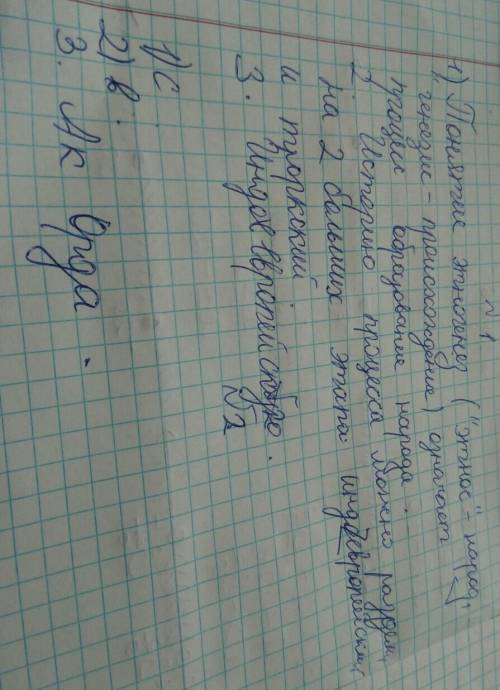 N 1
1) Понятие этногенез ("этнос" - народ,
"генезис - происхождение) означает
процесс образование народа.
2 Историю процесса можно раздели
на 2 больших этапа индоевропейский
и тюркский
3. Индоевропейскую.
N 2
1) С
2) в.
3. Ак Орда.